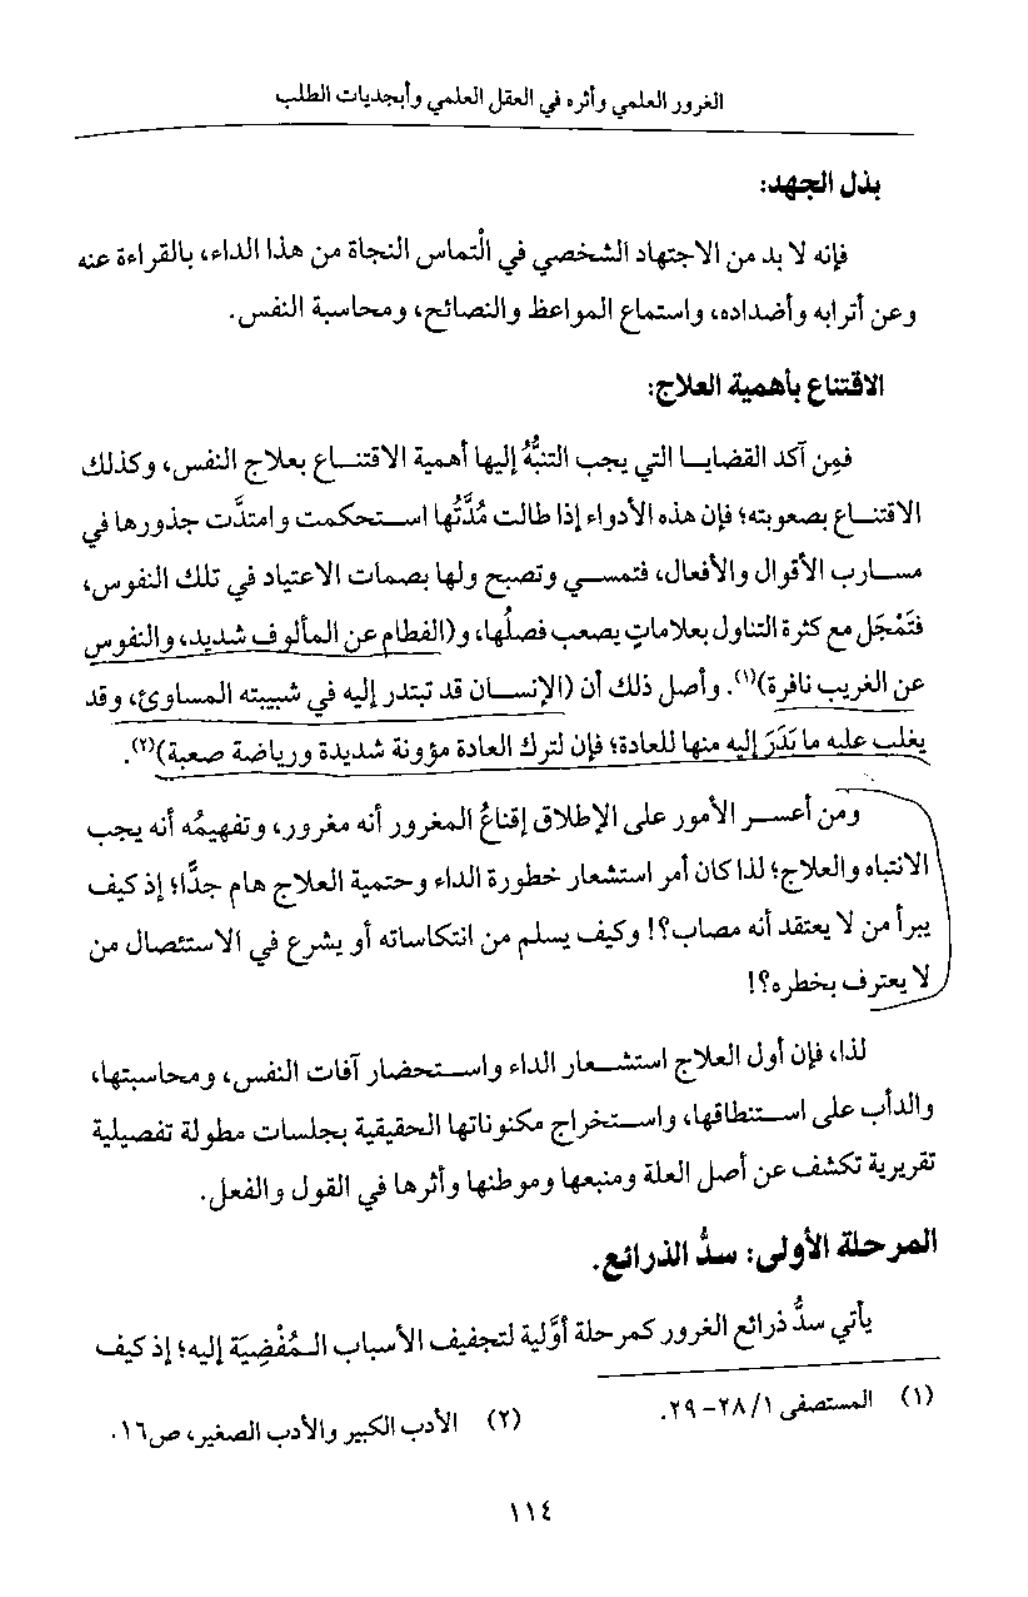 الغرور العلمي وأثره في العقل العلمي وأبجديات الطلب
بذل الجهد:
فإنه لا بد من الاجتهاد الشخصي في الْتماس النجاة من هذا الداء، بالقراءة عنه
وعن أترابه وأضداده، واستماع المواعظ والنصائح، ومحاسبة النفس.
الاقتناع بأهمية العلاج:
فمِن آكد القضايا التي يجب التنبُّهُ إليها أهمية الاقتناع بعلاج النفس، وكذلك
الاقتناع بصعوبته؛ فإن هذه الأدواء إذا طالت مُدَّتُها استحكمت وامتدَّت جذورها في
مسارب الأقوال والأفعال، فتمسي وتصبح ولها بصمات الاعتياد في تلك النفوس،
فتَمْجَل مع كثرة التناول بعلاماتٍ يصعب فصلُها، و(الفطام عن المألوف شديد، والنفوس
عن الغريب نافرة)(١). وأصل ذلك أن (الإنسان قد تبتدر إليه في شبيبته المساوئ، وقد
يغلب عليه ما بَدَرَ إليه منها للعادة؛ فإن لترك العادة مؤونة شديدة ورياضة صعبة)(٢).
ومن أعسر الأمور على الإطلاق إقناعُ المغرور أنه مغرور، وتفهيمُه أنه يجب
الانتباه والعلاج؛ لذا كان أمر استشعار خطورة الداء وحتمية العلاج هام جدًّا؛ إذ كيف
يبرأ من لا يعتقد أنه مصاب؟! وكيف يسلم من انتكاساته أو يشرع في الاستئصال من
لا يعترف بخطره؟!
لذا، فإن أول العلاج استشعار الداء واستحضار آفات النفس، ومحاسبتها،
والدأب على استنطاقها، واستخراج مكنوناتها الحقيقية بجلسات مطولة تفصيلية
تقريرية تكشف عن أصل العلة ومنبعها وموطنها وأثرها في القول والفعل.
المرحلة الأولى: سدُّ الذرائع.
يأتي سدُّ ذرائع الغرور كمرحلة أوَّلية لتجفيف الأسباب المُفْضِيَة إليه؛ إذ كيف
(١) المستصفى ١/ ٢٨- ٢٩.
(٢) الأدب الكبير والأدب الصغير، ص١٦.
١١٤